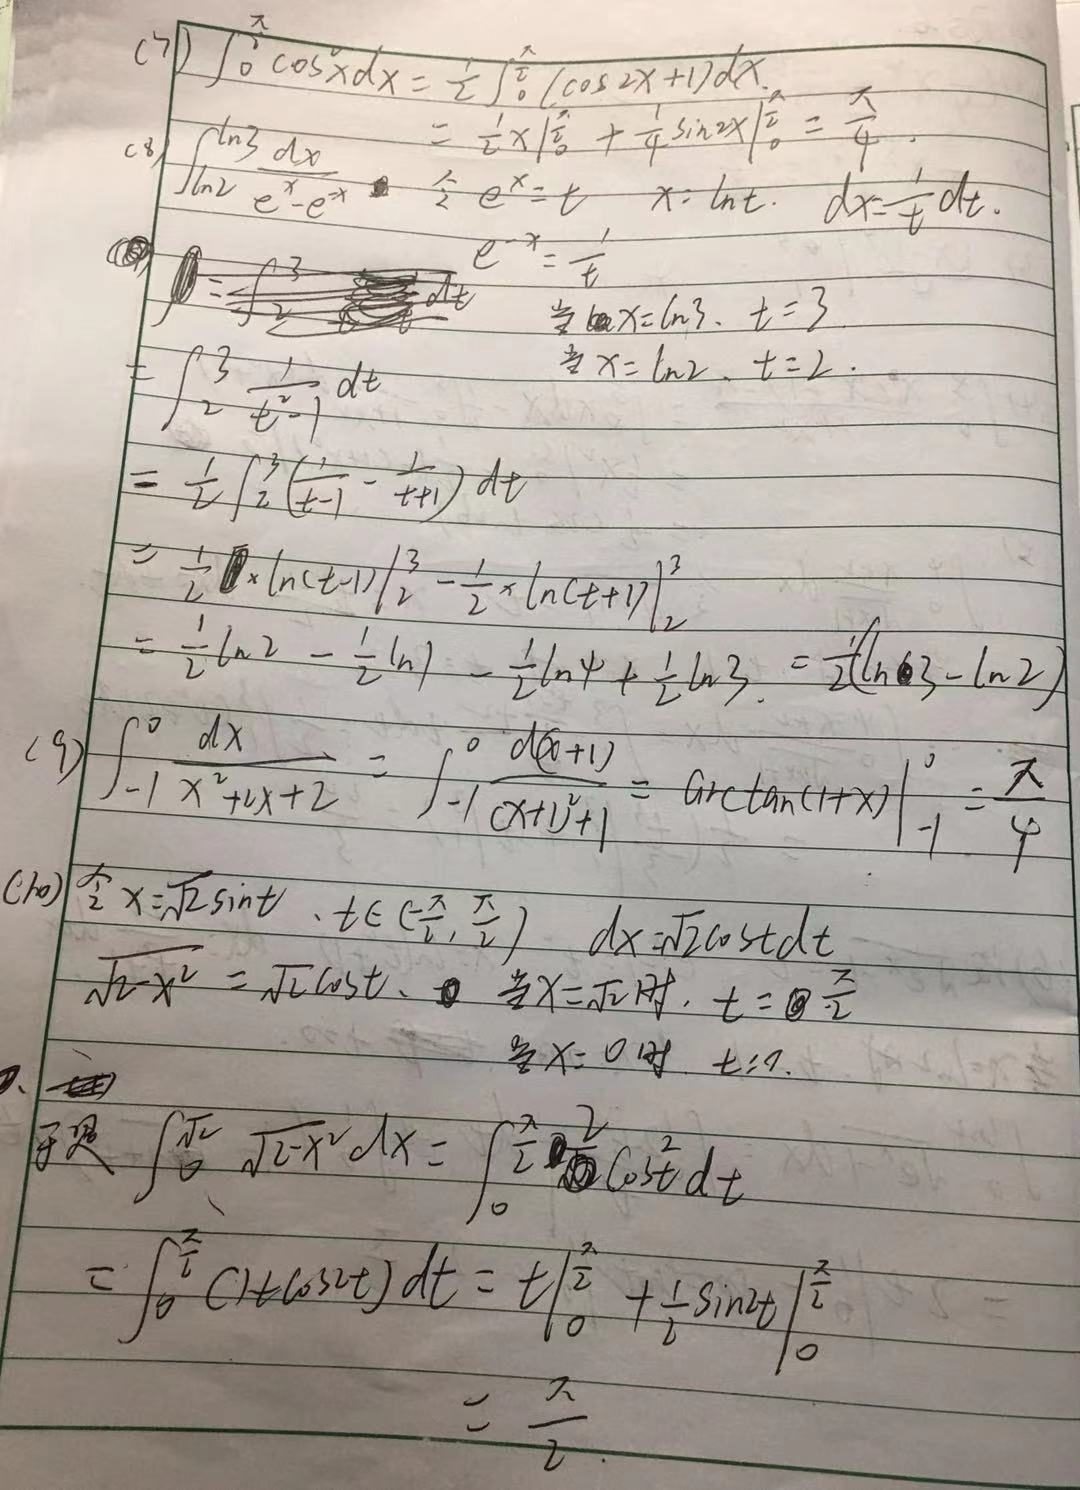 (7) ∫₀^(π/2) cos²x dx = 1/2 ∫₀^(π/2) (cos2x+1)dx.
= 1/2 x|₀^(π/2) + 1/4 sin2x|₀^(π/2) = π/4.
(8) ∫_(ln2)^(ln3) dx/(e^x - e^(-x)) 令 e^x = t x = lnt. dx = 1/t dt.
e^(-x) = 1/t
当 x = ln3、 t = 3
当 x = ln2、 t = 2.
= ∫₂³ 1/(t²-1) dt
= 1/2 ∫₂³ (1/(t-1) - 1/(t+1)) dt
= 1/2 × ln(t-1)|₂³ - 1/2 × ln(t+1)|₂³
= 1/2 ln2 - 1/2 ln1 - 1/2 ln4 + 1/2 ln3. = 1/2(ln3 - ln2)
(9) ∫₋₁⁰ dx/(x²+2x+2) = ∫₋₁⁰ d(x+1)/((x+1)²+1) = arctan(1+x)|₋₁⁰ = π/4
(10) 令 x = √2 sint、t∈(-π/2, π/2) dx = √2 cost dt
√(2-x²) = √2 cost、 当 x = √2 时. t = π/2
当 x = 0 时 t = 0.
于是 ∫₀^(√2) √(2-x²) dx = ∫₀^(π/2) 2cos²t dt
= ∫₀^(π/2) (1+cos2t) dt = t|₀^(π/2) + 1/2 sin2t|₀^(π/2)
= π/2.